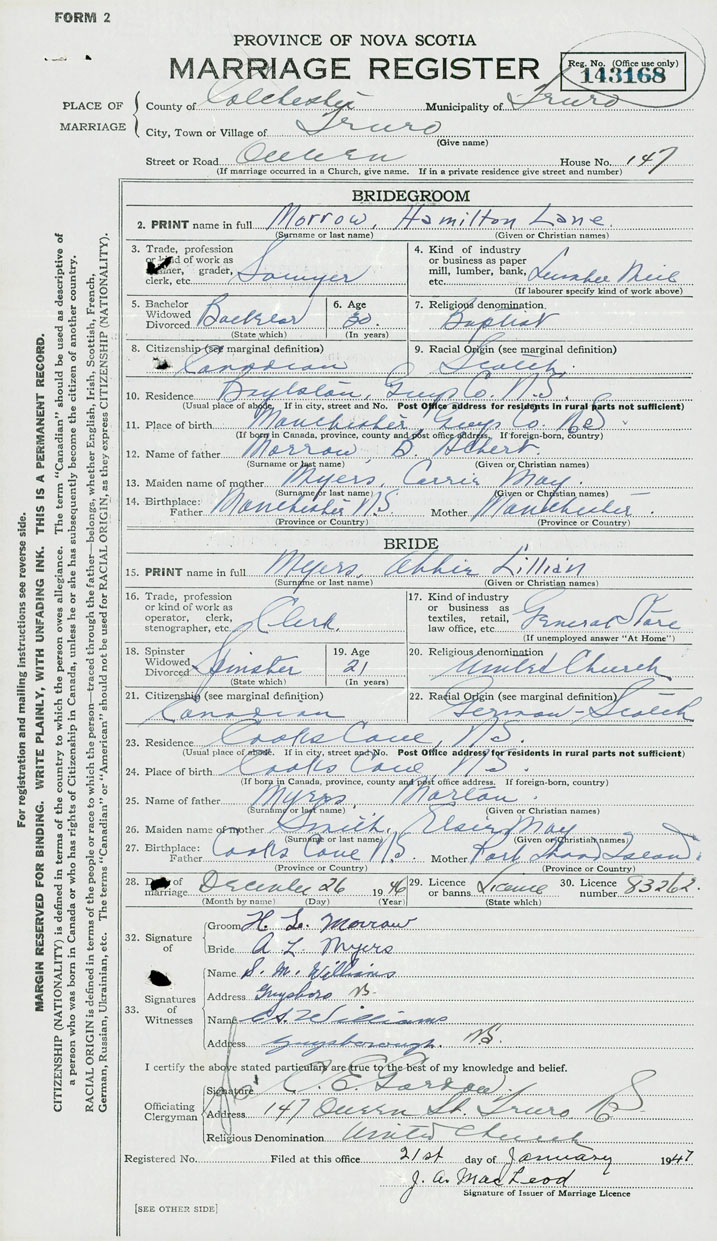 FORM 2
PROVINCE OF NOVA SCOTIA
MARRIAGE REGISTER
Reg. No. (Office use only)
143168
PLACE OF MARRIAGE
County of Colchester Municipality of Truro
City, Town or Village of Truro
(Give name)
Street or Road Queen House No. 147
(If marriage occurred in a Church, give name. If in a private residence give street and number)
BRIDEGROOM
2. PRINT name in full Morrow, Hamilton Lane
(Surname or last name) (Given or Christian names)
3. Trade, profession or kind of work as miner, grader, clerk, etc. Sawyer
4. Kind of industry or business as paper mill, lumber, bank, etc. Lumber Mill
(If labourer specify kind of work above)
5. Bachelor Widowed Divorced Bachelor
(State which)
6. Age 30
(In years)
7. Religious denomination Baptist
8. Citizenship (see marginal definition) Canadian
9. Racial Origin (see marginal definition) Scotch
10. Residence Boylston, Guys Co. N.S.
(Usual place of abode. If in city, street and No. Post Office address for residents in rural parts not sufficient)
11. Place of birth Manchester, Guys Co. NS
(If born in Canada, province, county and post office address. If foreign-born, country)
12. Name of father Morrow, B.
(Surname or last name) (Given or Christian names)
13. Maiden name of mother Myers, Carrie May
(Surname or last name) (Given or Christian names)
14. Birthplace: Father Manchester N.S. Mother Manchester
(Province or Country) (Province or Country)
BRIDE
15. PRINT name in full Myers, Abbie Lillian
(Surname or last name) (Given or Christian names)
16. Trade, profession or kind of work as operator, clerk, stenographer, etc. Clerk
17. Kind of industry or business as textiles, retail, law office, etc. General Store
(If unemployed answer "At Home")
18. Spinster Widowed Divorced Spinster
(State which)
19. Age 21
(In years)
20. Religious denomination United Church
21. Citizenship (see marginal definition) Canadian
22. Racial Origin (see marginal definition) German-Scotch
23. Residence Cooks Cove, N.S.
(Usual place of abode. If in city, street and No. Post Office address for residents in rural parts not sufficient)
24. Place of birth Cooks Cove, N.S.
(If born in Canada, province, county and post office address. If foreign-born, country)
25. Name of father Myers, Norton
(Surname or last name) (Given or Christian names)
26. Maiden name of mother Smith, Elsie May
(Surname or last name) (Given or Christian names)
27. Birthplace: Father Cooks Cove N.S. Mother Island
(Province or Country) (Province or Country)
28. Day of marriage December 26 1946
(Month by name) (Day) (Year)
29. Licence or banns Licence
(State which)
30. Licence number 83262
32. Signature of
Groom H. L. Morrow
Bride A L Myers
33. Signatures of Witnesses
Name S. M. Williams
Address Guysboro NS
Name Williams
Address Guysborough. N.S.
I certify the above stated particulars are true to the best of my knowledge and belief.
Officiating Clergyman
Signature C. E. Gordon
Address 147 Queen St. Truro N.S.
Religious Denomination United Church
Registered No. Filed at this office 21st day of January 1947
J. A. MacLeod
Signature of Issuer of Marriage Licence
[SEE OTHER SIDE]
For registration and mailing instructions see reverse side.
MARGIN RESERVED FOR BINDING. WRITE PLAINLY, WITH UNFADING INK. THIS IS A PERMANENT RECORD.
CITIZENSHIP (NATIONALITY) is defined in terms of the country to which the person owes allegiance. The term "Canadian" should be used as descriptive of
a person who was born in Canada or who has rights of Citizenship in Canada, unless he or she has subsequently become the citizen of another country.
RACIAL ORIGIN is defined in terms of the people or race to which the person—traced through the father—belongs, whether English, Irish, Scottish, French,
German, Russian, Ukrainian, etc. The terms "Canadian" or "American" should not be used for RACIAL ORIGIN, as they express CITIZENSHIP (NATIONALITY).